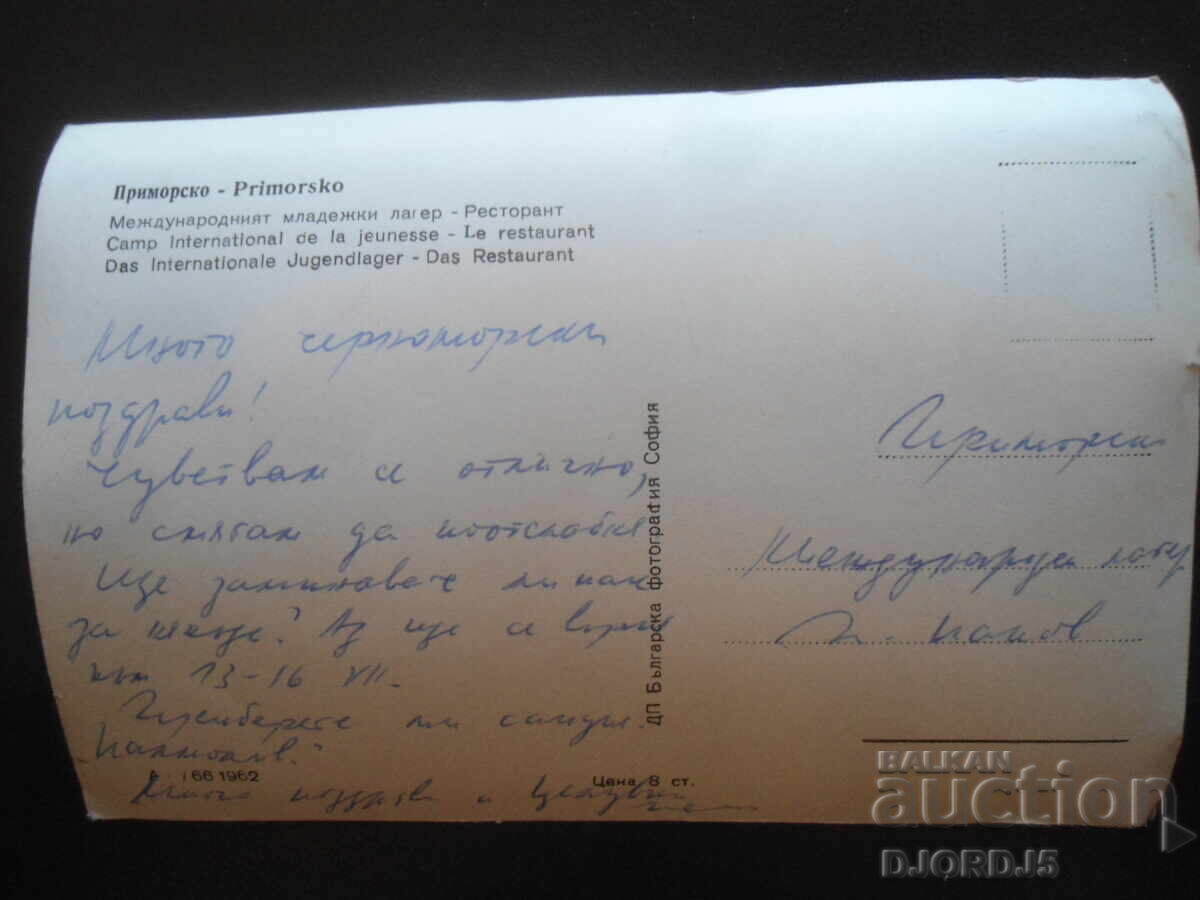 Приморско - Primorsko
Международният младежки лагер - Ресторант
Camp International de la jeunesse - Le restaurant
Das Internationale Jugendlager - Das Restaurant
Много черноморски
поздрави!
Чувствам се отлично,
но смятам да поотслабна
Ще заминавате ли пак
за някъде? Аз ще се върна
към 13-16 VII.
ли
66 1962
Цена 8 ст.
Много поздрави и целувки
ДП Българска фотография София
Приморско
Международен лагер
Попов
BALKAN
auction
DJORDJ5